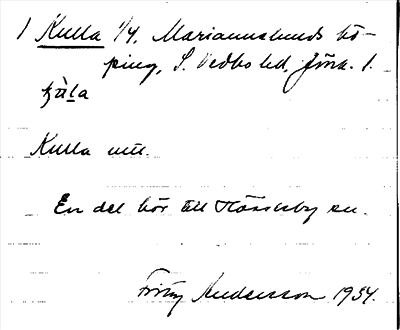 1 Kulla 1/4, Mariannelunds kö-
ping, S. Vedbo hd, Jönk. l.
Kulla utt.
En del hör till Hässleby sn.
Andersson 1954.